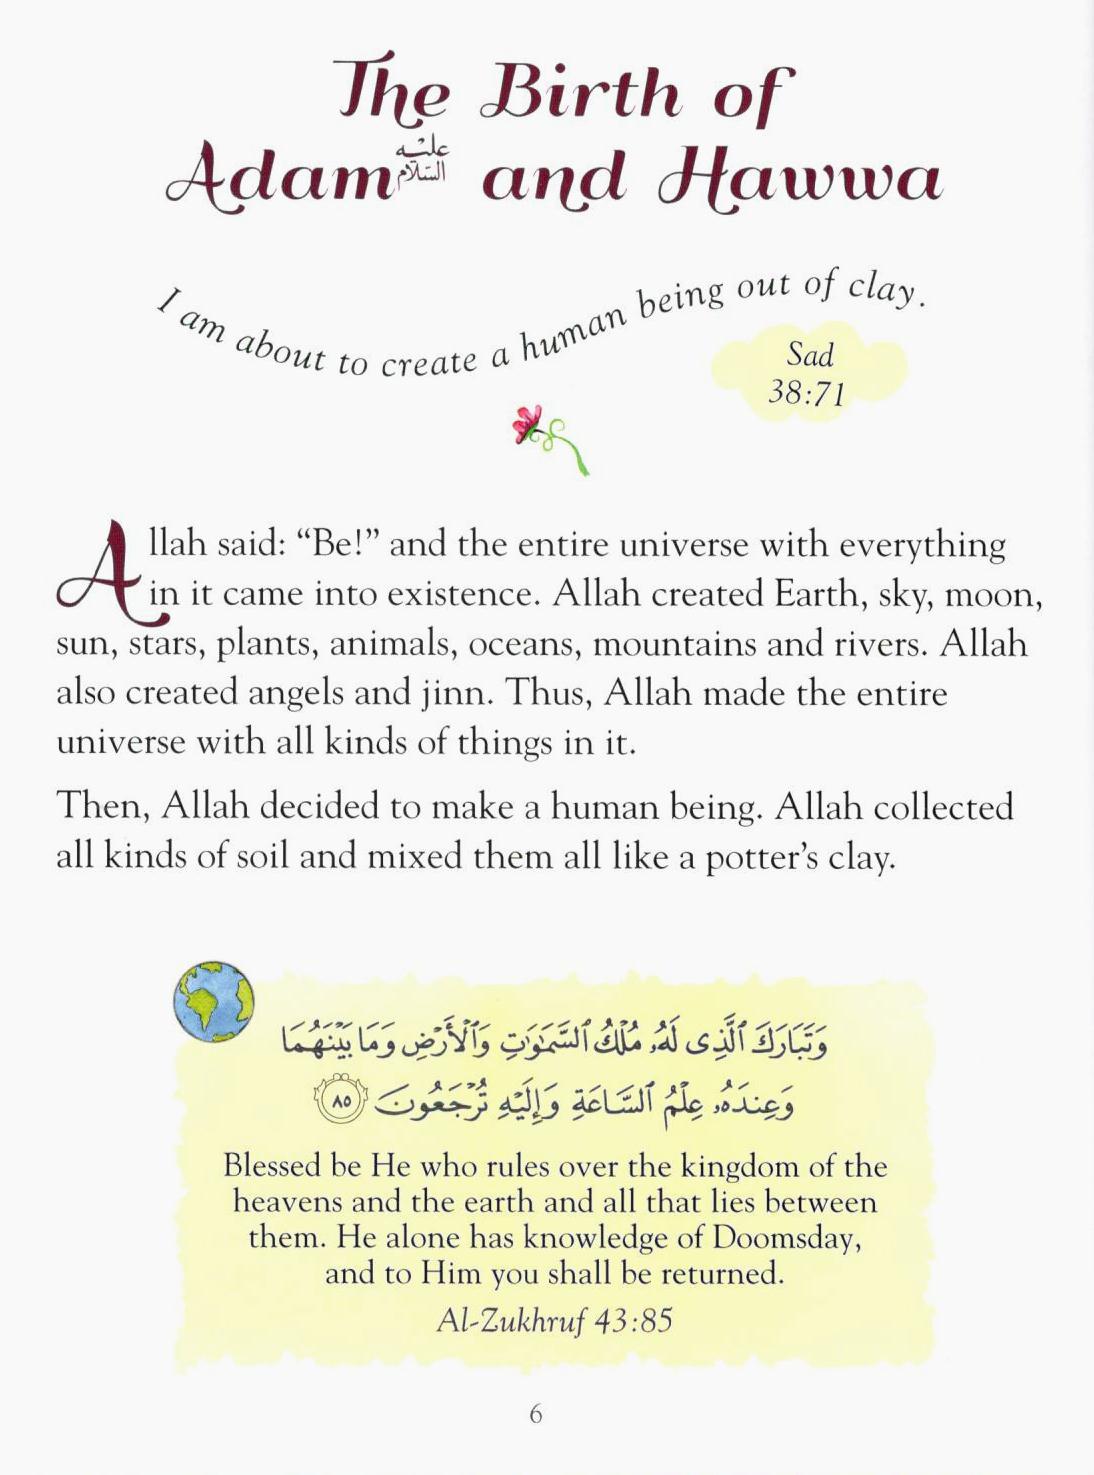 The Birth of
Adam عليه السلام and Hawwa
I am about to create a human being out of clay.
Sad
38:71
Allah said: “Be!” and the entire universe with everything
in it came into existence. Allah created Earth, sky, moon,
sun, stars, plants, animals, oceans, mountains and rivers. Allah
also created angels and jinn. Thus, Allah made the entire
universe with all kinds of things in it.
Then, Allah decided to make a human being. Allah collected
all kinds of soil and mixed them all like a potter’s clay.
وَتَبَارَكَ ٱلَّذِى لَهُۥ مُلْكُ ٱلسَّمَٰوَٰتِ وَٱلْأَرْضِ وَمَا بَيْنَهُمَا
وَعِندَهُۥ عِلْمُ ٱلسَّاعَةِ وَإِلَيْهِ تُرْجَعُونَ ٨٥
Blessed be He who rules over the kingdom of the
heavens and the earth and all that lies between
them. He alone has knowledge of Doomsday,
and to Him you shall be returned.
Al-Zukhruf 43:85
6